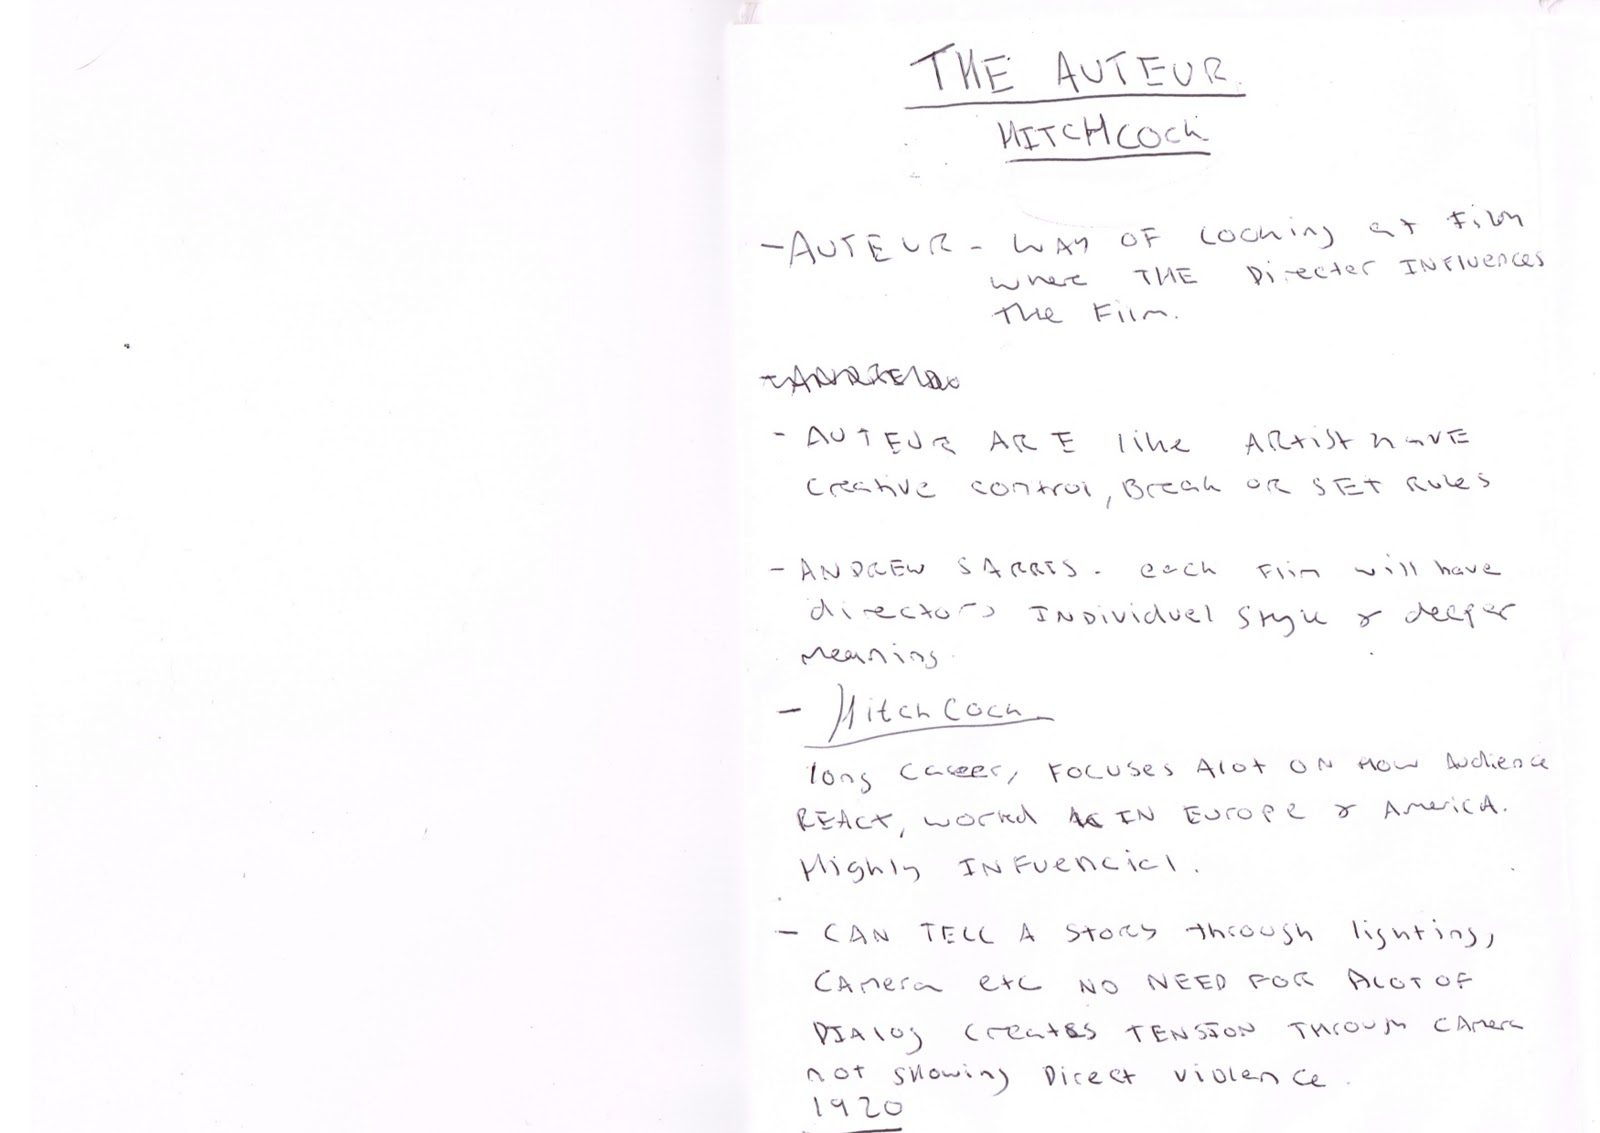 THE AUTEUR
HITCHCOCK
- AUTEUR - WAY OF LOOKING at Film
where THE Director INFLUENCES
THE Film.
- AUTEUR ARE like ARtist have
Creative control, Break OR SET RULES
- ANDREW SARRIS - each Film will have
directors INDividuel Style & deeper
Meaning.
- Hitchcock
long Career, FOCUSES Alot ON HOW Audience
REACt, worked IN EuroPE & AmericA.
Highly INFuencial.
- CAN TELL A Story through lighting,
CAmera etc NO NEED FOR ALOT OF
DIAlog Creates TENSION THROUGh CAmera
not SHOWING Direct violence.
1920